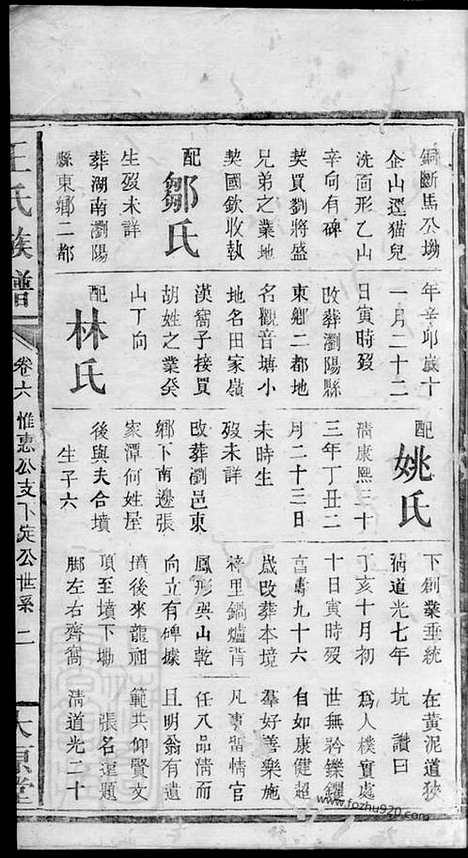 銅斷馬公坳
金山逕猫兒
洗面形乙山
辛向有碑
契買劉將盛
兄弟之業地
契國欽收執
配鄒氏
生歿未詳
葬湖南瀏陽
縣東鄉二都
年辛卯歲十
一月二十二
日寅時歿
改葬瀏陽縣
東鄉二都地
名觀音塘小
地名田家嶺
漢窩子接買
胡姓之業癸
山丁向
配林氏
配姚氏
清康熙三十
三年丁丑二
月二十三日
未時生
歿未詳
改葬瀏邑東
鄉下南邊張
家潭何姓屋
後與夫合墳
生子六
下創業垂統
清道光七年
丁亥十月初
十日寅時歿
享壽九十六
歲改葬本境
裱里鍋爐背
鳳形巽山乾
向立有碑據
墳後來龍祖
頂至墳下坳
脚左右齊窩
在黃泥道狹
坑 讚曰
為人樸實處
世無矜鑠耀
自如康健超
羣好善樂施
凡事畱情官
任八品清而
且明翁有遺
範共仰賢文
張名運題
清道光二十
王氏族譜
卷六 惟惠公支下定公世系 二
太原堂
www.fozhu920.com